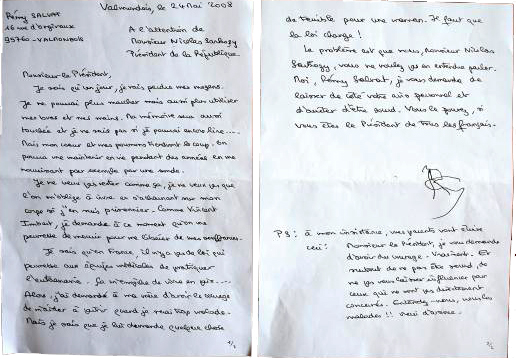 Rémy SALVAT
16 rue d'orgivaux
95760 - VALMONDOIS
Valmondois, le 24 Mai 2008
A l'attention de
Monsieur Nicolas Sarkozy
Président de la République
Monsieur le Président,
Je sais qu'un jour, je vais perdre mes moyens.
Je ne pourrai plus marcher mais aussi plus utiliser
mes bras et mes mains. Ma mémoire sera aussi
touchée et je ne sais pas si je pourrai encore lire....
Mais mon coeur et mes poumons tiendront le coup. On
pourra me maintenir en vie pendant des années en me
nourrissant par exemple par une sonde.
Je ne veux pas rester comme ça, je ne veux pas que
l'on m'oblige à vivre en s'acharnant sur mon
corps si j'en suis prisonnier. Comme Vincent
Imbert, je demande à ce moment qu'on me
permette de mourir pour me libérer de mes souffrances.
Je sais qu'en France, il n'y a pas de loi qui
permette aux équipes médicales de pratiquer
l'euthanasie. Ça m'empêche de vivre en paix....
Alors, j'ai demandé à ma mère d'avoir le courage
de m'aider à partir quand je serai trop malade.
Mais je sais que je lui demande quelque chose
1/2
de terrible pour une maman. Il faut que
la loi change !
Le problème est que vous, Monsieur Nicolas
Sarkozy, vous ne voulez pas en entendre parler.
Moi, Rémy Salvat, je vous demande de
laisser de côté votre avis personnel et
d'arrêter d'être sourd. Vous le pouvez, si
vous êtes le Président de Tous les français.
PS : à mon insistance, mes parents vont écrire
ceci : Monsieur le Président, je vous demande
d'avoir du courage. Vraiment. Et
surtout de ne pas être sourd, de
ne pas vous laisser influencer par
ceux qui ne sont pas directement
concernés. Entendez-nous, nous les
malades !! merci d'avance.
2/2